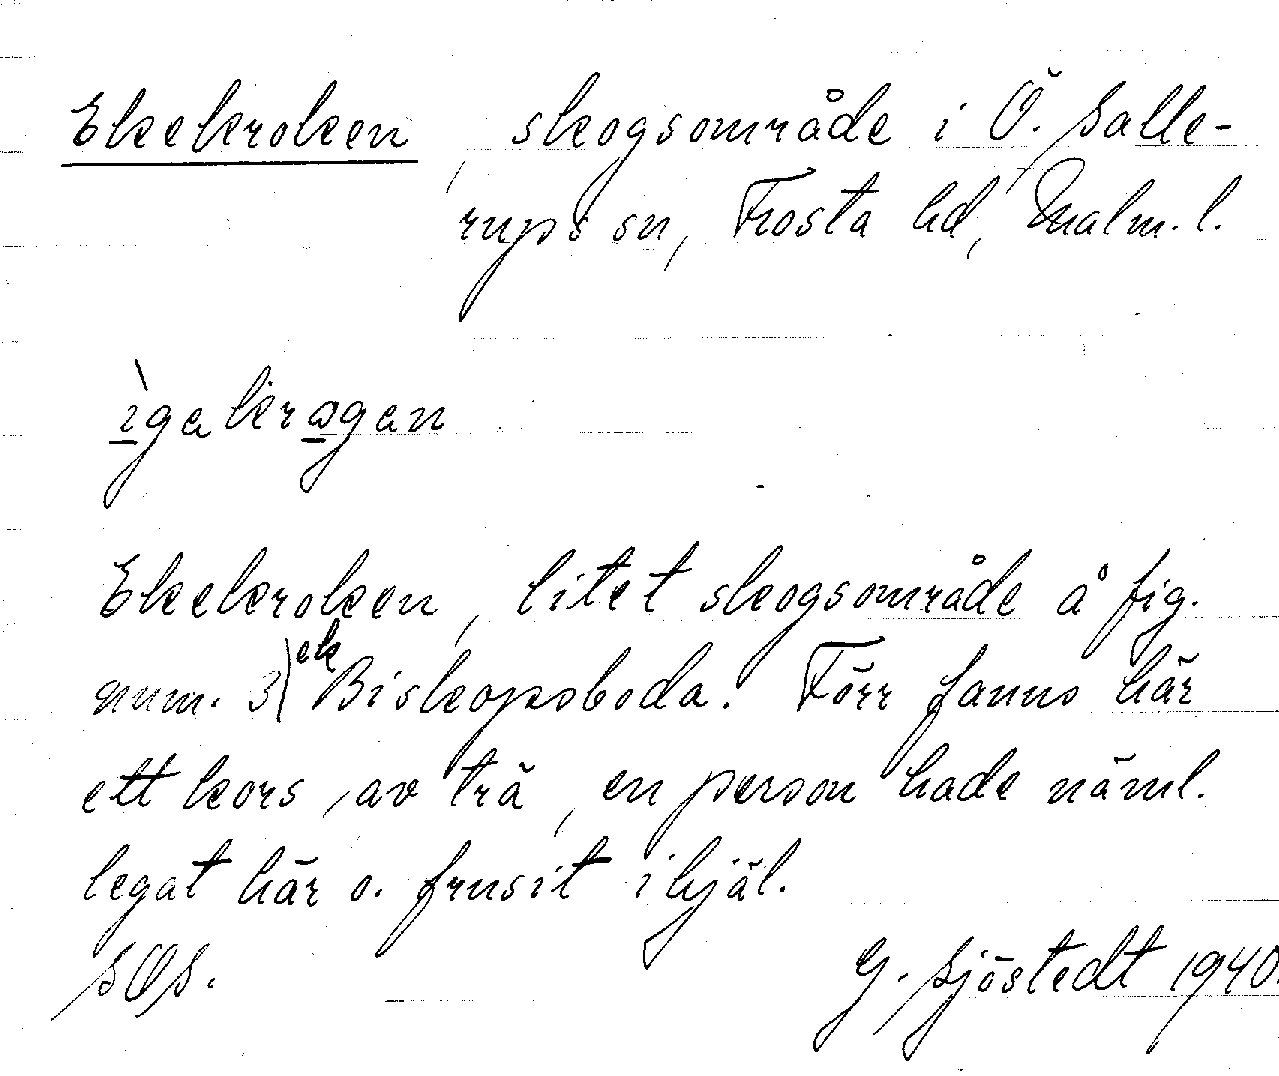 Ekekroken, skogsområde i Ö. Salle-
rups sn, Frosta hd, Malm. l.
ìgakrågan
Ekekroken, litet skogsområde å fig.
num. 3) ek Biskopsboda. Förr fanns här
ett kors, av trä, en person hade näml.
legat här o. frusit ihjäl.
SOS.
G. Sjöstedt 1940.